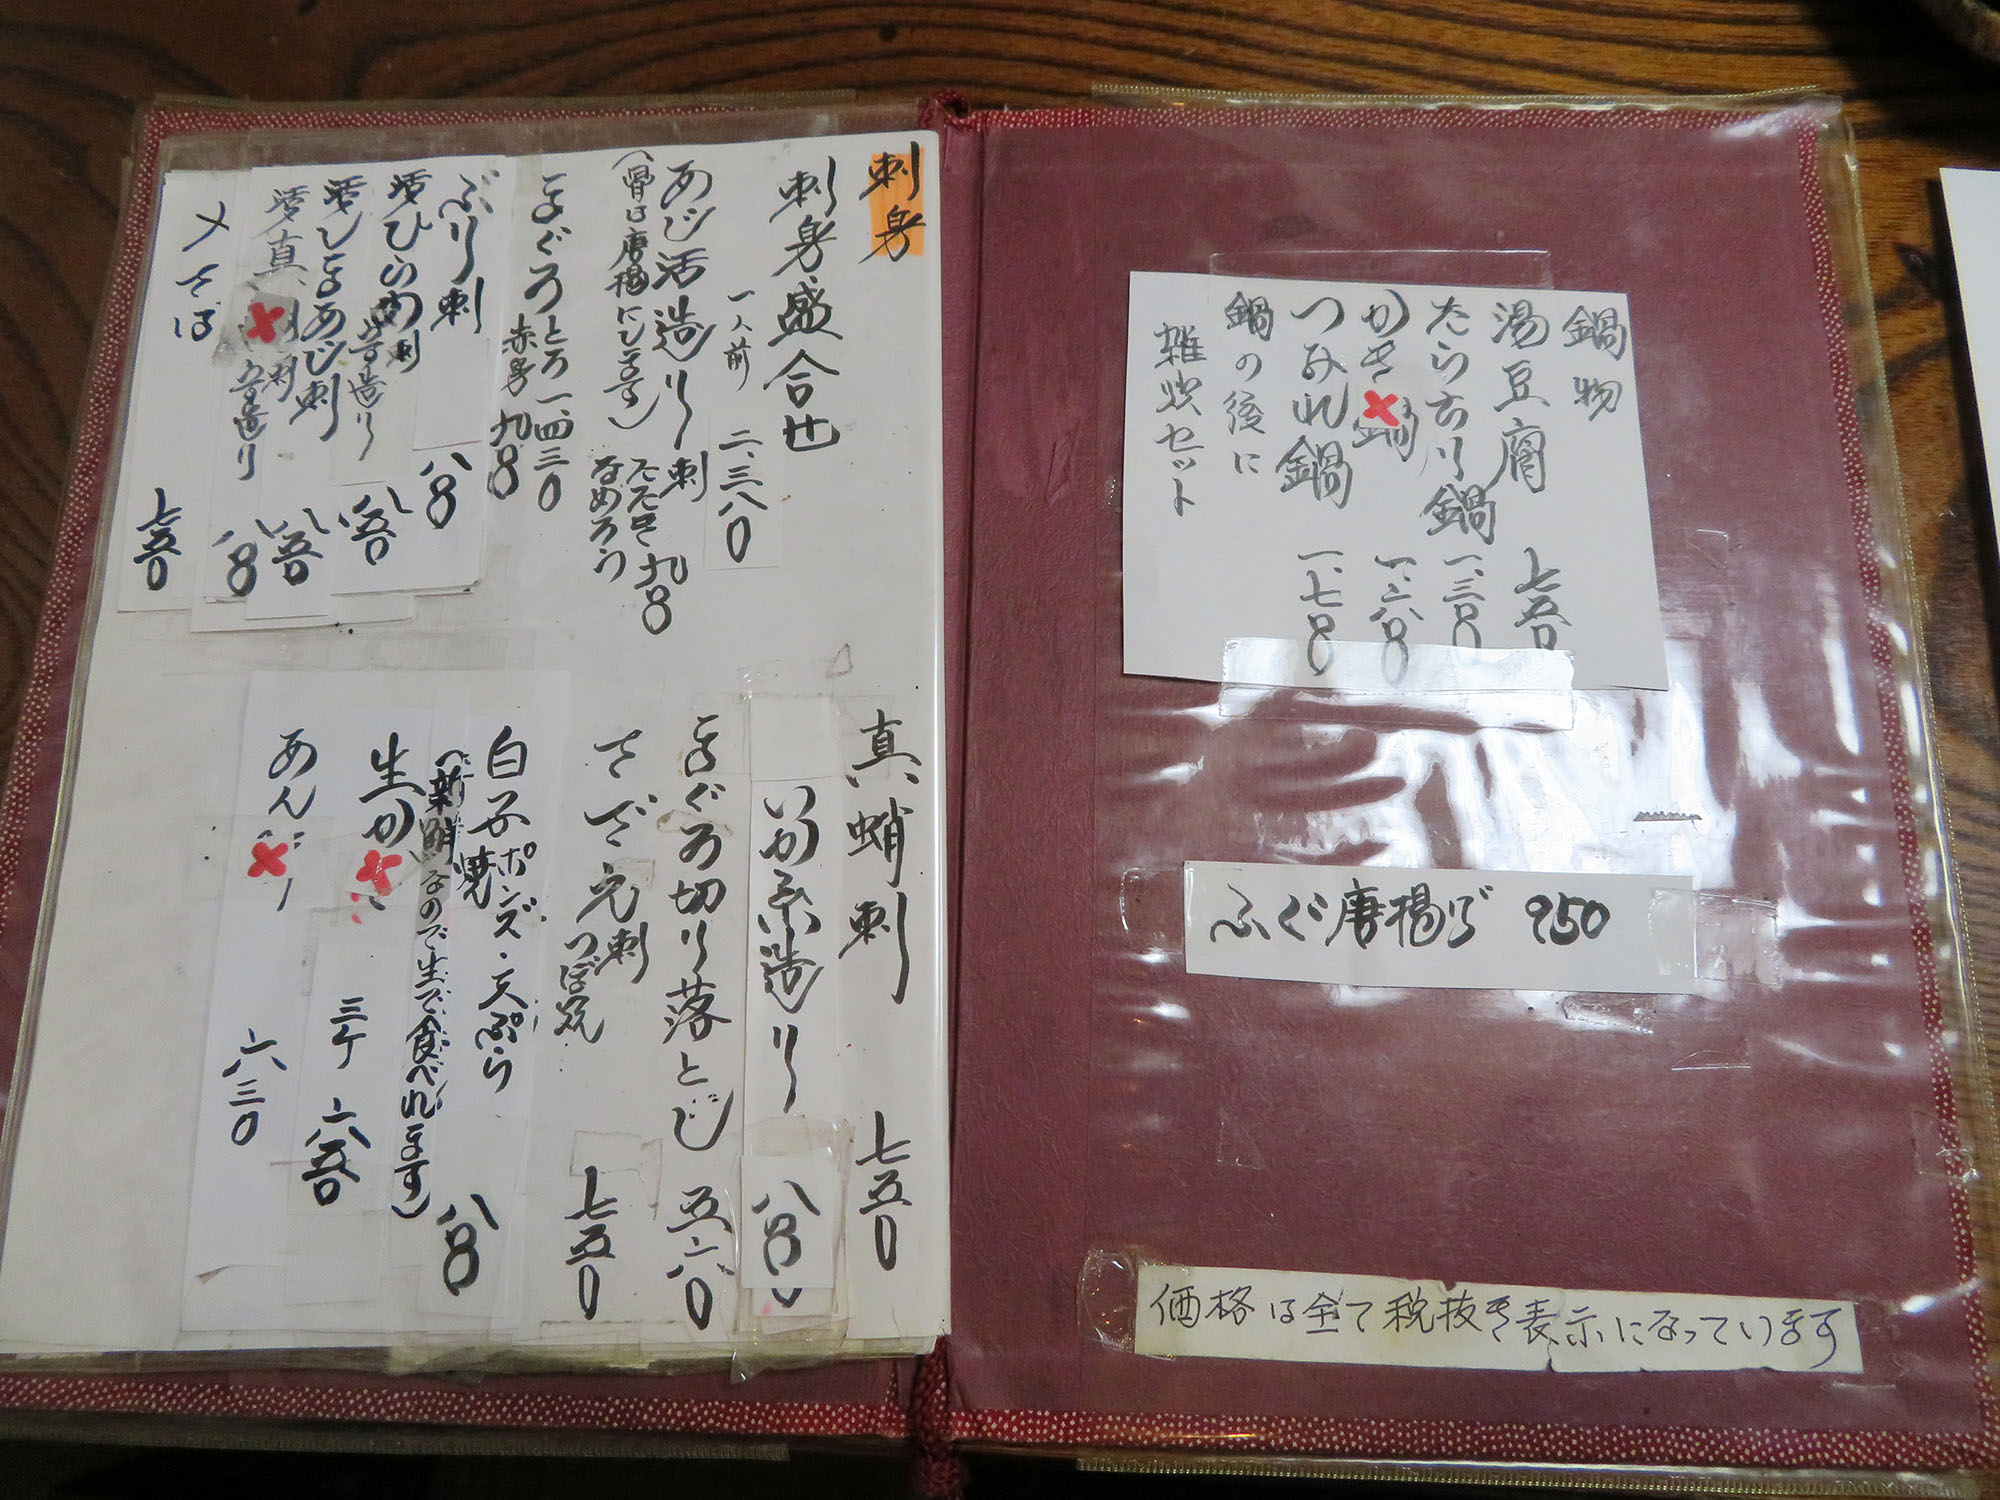 刺身
刺身盛合せ 一人前 二、三八〇
あじ活造り 刺 たたき なめろう 九八〇
(骨は唐揚にします)
まぐろ とろ 一、四三〇
赤身 九八〇
ぶり刺 八八〇
活ひらめ刺 姿造り 八五〇
活しまあじ刺 八五〇
活真 刺 姿造り 八八〇
〆さば 七五〇
真蛸刺 七五〇
いか糸造り 八八〇
まぐろ切り落とし 五六〇
さざえ刺 つぼ焼 七五〇
白子ポンズ・天ぷら 焼 八八〇
(新鮮なので生で食べれます)
生かき 三ケ 六八〇
あん 六三〇
鍋物
湯豆腐 七五〇
たらちり鍋 一、三八〇
かき鍋 一、六八〇
つみれ鍋 一、七八〇
鍋の後に
雑炊セット
ふぐ唐揚げ 950
価格は全て税抜き表示になっています